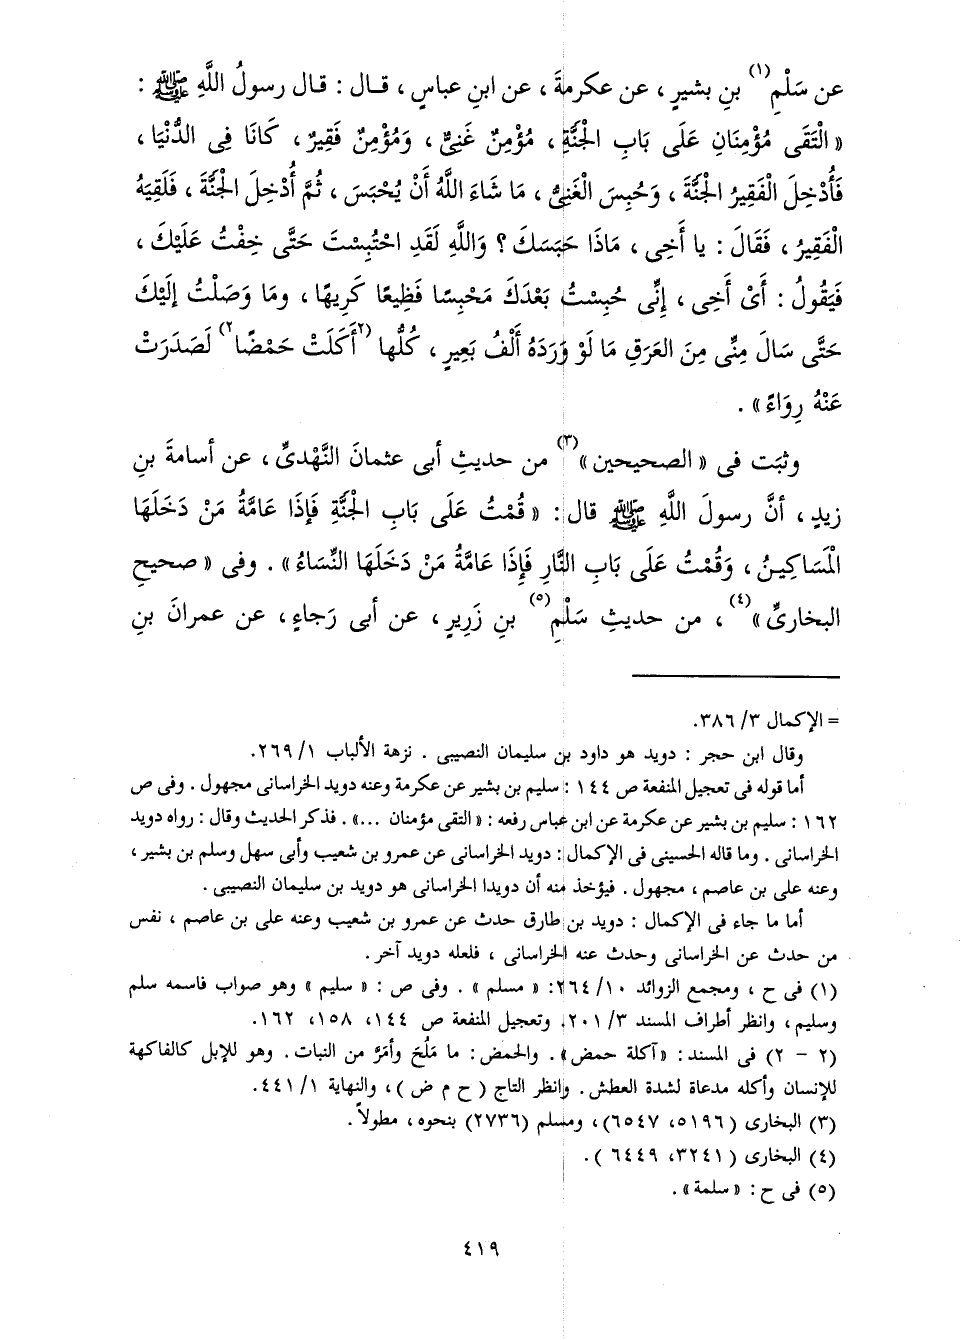 عن سَلْمِ(١) بنِ بشيرٍ ، عن عكرمةَ ، عن ابنِ عباسٍ ، قـال : قال رسولُ اللَّهِ ﷺ :
« الْتَقَى مُؤْمِنَانِ عَلَى بَابِ الْجَنَّةِ ، مُؤْمِنٌ غَنِىٌّ ، وَمُؤْمِنٌ فَقِيرٌ ، كَانَا فِى الدُّنْيَا ،
فَأُدْخِلَ الْفَقِيرُ الْجَنَّةَ ، وَحُبِسَ الْغَنِىُّ ، مَا شَاءَ اللَّهُ أَنْ يُحْبَسَ ، ثُمَّ أُدْخِلَ الْجَنَّةَ ، فَلَقِيَهُ
الْفَقِيرُ ، فَقَالَ : يا أَخِى ، مَاذَا حَبَسَكَ ؟ وَاللَّهِ لَقَدِ احْتُبِسْتَ حَتَّى خِفْتُ عَلَيْكَ ،
فَيَقُولُ : أَىْ أَخِى ، إِنِّى حُبِسْتُ بَعْدَكَ مَحْبِسًا فَظِيعًا كَرِيهًا ، وما وَصَلْتُ إِلَيْكَ
حَتَّى سَالَ مِنِّى مِنَ العَرَقِ مَا لَوْ وَرَدَهُ أَلْفُ بَعِيرٍ ، كُلُّها (٢أَكَلَتْ حَمْضًا٢) لَصَدَرَتْ
عَنْهُ رِوَاءً » .
وثبَت فى « الصحيحين »(٣) من حديثِ أبى عثمانَ النَّهْدىِّ ، عن أسامةَ بنِ
زيدٍ ، أنَّ رسولَ اللَّهِ ﷺ قال : « قُمْتُ عَلَى بَابِ الْجَنَّةِ فَإِذَا عَامَّةُ مَنْ دَخَلَهَا
الْمَسَاكِينُ ، وَقُمْتُ عَلَى بَابِ النَّارِ فَإِذَا عَامَّةُ مَنْ دَخَلَهَا النِّسَاءُ » . وفى « صحيحِ
البخارىِّ »(٤) ، من حديثِ سَلْمِ(٥) بنِ زَرِيرٍ ، عن أبى رَجاءٍ ، عن عمرانَ بنِ
= الإكمال ٣/ ٣٨٦.
وقال ابن حجر : دويد هو داود بن سليمان النصيبى . نزهة الألباب ١/ ٢٦٩.
أما قوله فى تعجيل المنفعة ص ١٤٤ : سليم بن بشير عن عكرمة وعنه دويد الخراسانى مجهول . وفى ص
١٦٢ : سليم بن بشير عن عكرمة عن ابن عباس رفعه : « التقى مؤمنان ...» . فذكر الحديث وقال : رواه دويد
الخراسانى . وما قاله الحسينى فى الإكمال : دويد الخراسانى عن عمرو بن شعيب وأبى سهل وسلم بن بشير ،
وعنه على بن عاصم ، مجهول . فيؤخذ منه أن دويدا الخراسانى هو دويد بن سليمان النصيبى .
أما ما جاء فى الإكمال : دويد بن طارق حدث عن عمرو بن شعيب وعنه على بن عاصم ، نفس
من حدث عن الخراسانى وحدث عنه الخراسانى ، فلعله دويد آخر .
(١) فى ح ، ومجمع الزوائد ١٠/ ٢٦٤: « مسلم » . وفى ص : « سليم » وهو صواب فاسمه سلم
وسليم ، وانظر أطراف المسند ٣/ ٢٠١، وتعجيل المنفعة ص ١٤٤، ١٥٨، ١٦٢.
(٢ - ٢) فى المسند : «آكلة حمض» . والحمض: ما مَلُحَ وأمَرَّ من النبات . وهو للإبل كالفاكهة
للإنسان وأكله مدعاة لشدة العطش . وانظر التاج ( ح م ض ) ، والنهاية ١/ ٤٤١.
(٣) البخارى (٥١٩٦، ٦٥٤٧)، ومسلم (٢٧٣٦) بنحوه ، مطولاً .
(٤) البخارى (٣٢٤١، ٦٤٤٩ ) .
(٥) فى ح : « سلمة » .
٤١٩